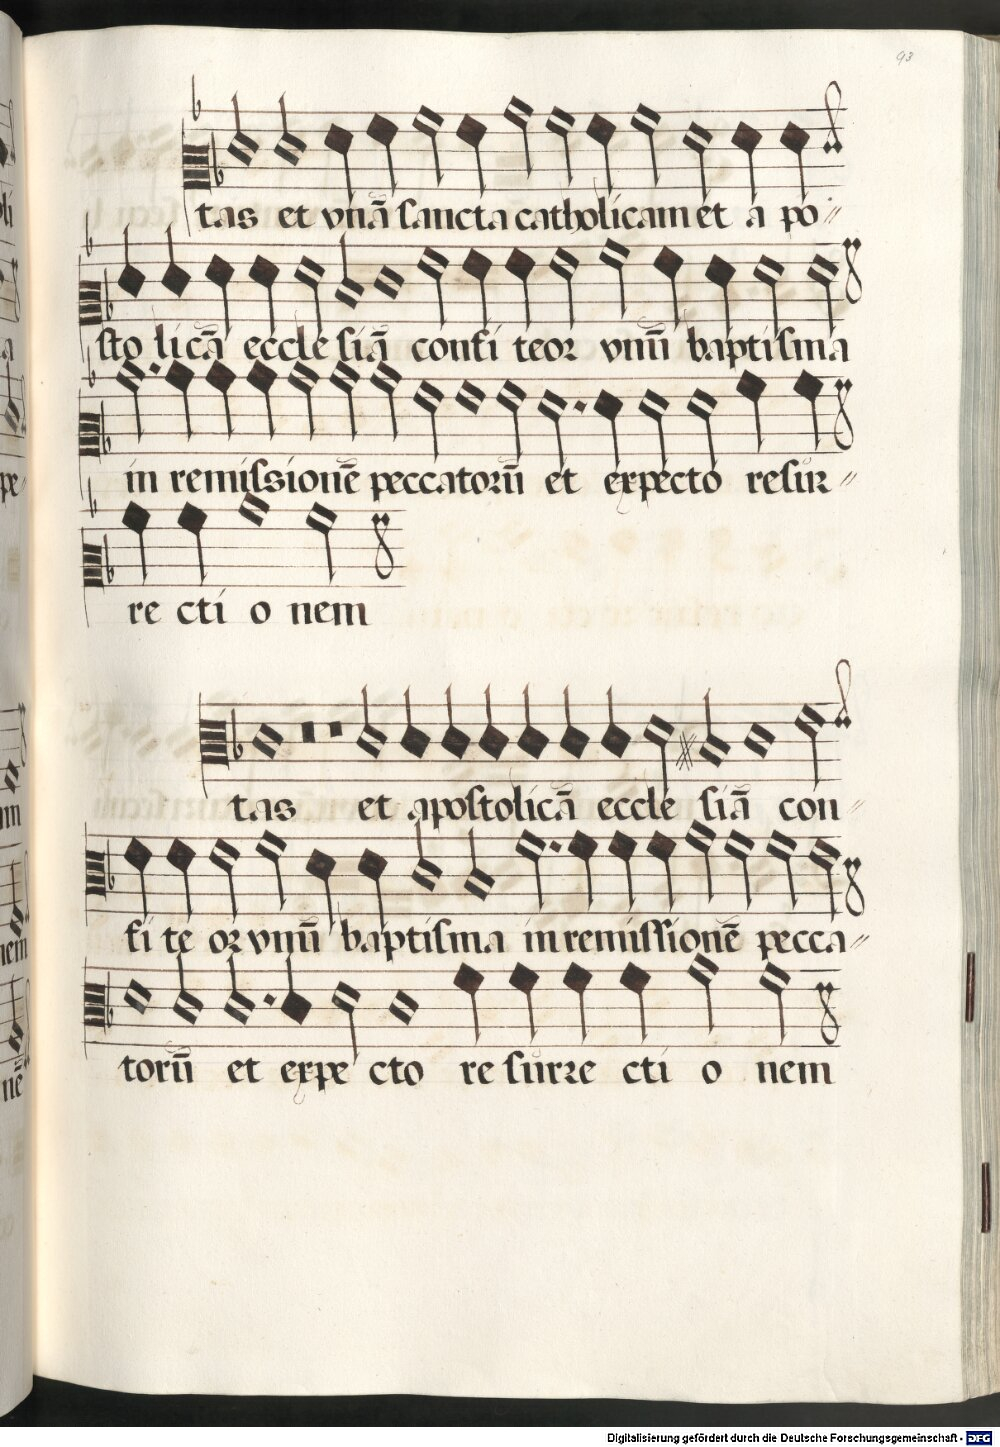 93
tas et vnā sancta catholicam et a po-
sto licā eccle siā confi teor vnūī baptisma
in remissionē peccatorū et expecto resur-
re cti o nem
tas et apostolicā eccle siā con-
fi te or vnūī baptisma in remissionē pecca-
torū et expe cto re surre cti o nem
Digitalisierung gefördert durch die Deutsche Forschungsgemeinschaft - DFG